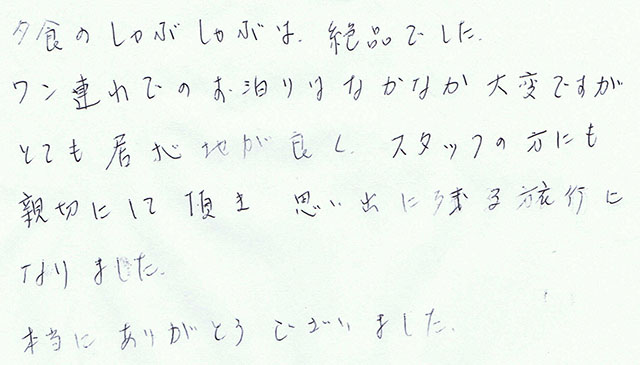 夕食のしゃぶしゃぶは、絶品でした。
ワン連れでのお泊りはなかなか大変ですが
とても居心地が良く、スタッフの方にも
親切にして頂き 思い出に残る旅行に
なりました。
本当にありがとうございました。